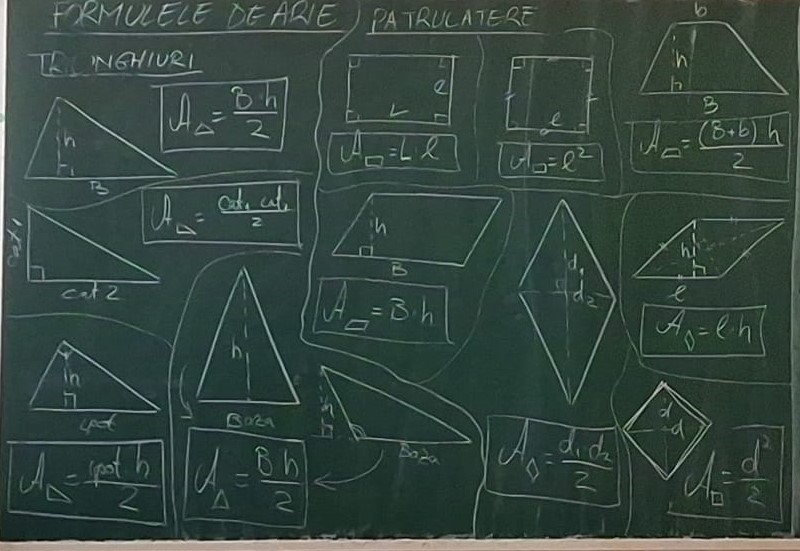 FORMULELE DE ARIE
PATRULATERE
TRIUNGHIURI
h
B
A△ = B·h / 2
cat 1
cat 2
A◺ = cat₁ cat₂ / 2
h
ipot
A◺ = ipot h / 2
h
Baza
h
Baza
A△ = B h / 2
L
l
A▭ = L·l
l
A□ = l²
b
h
B
A⏢ = (B+b) h / 2
h
B
A▱ = B·h
d₁
d₂
A◊ = d₁ d₂ / 2
h
l
A◊ = l·h
d
d
A□ = d² / 2